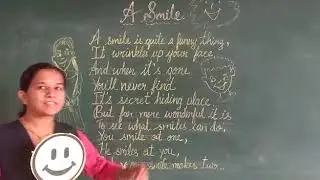 A Smile.
A smile is quite a funny thing,
It wrinkles up your face...
And when it's gone
You'll never find
It's secret hiding place.
But far more wonderful it is
To see what smiles can do,
You smile at one,
He smiles at you,
smile makes two...